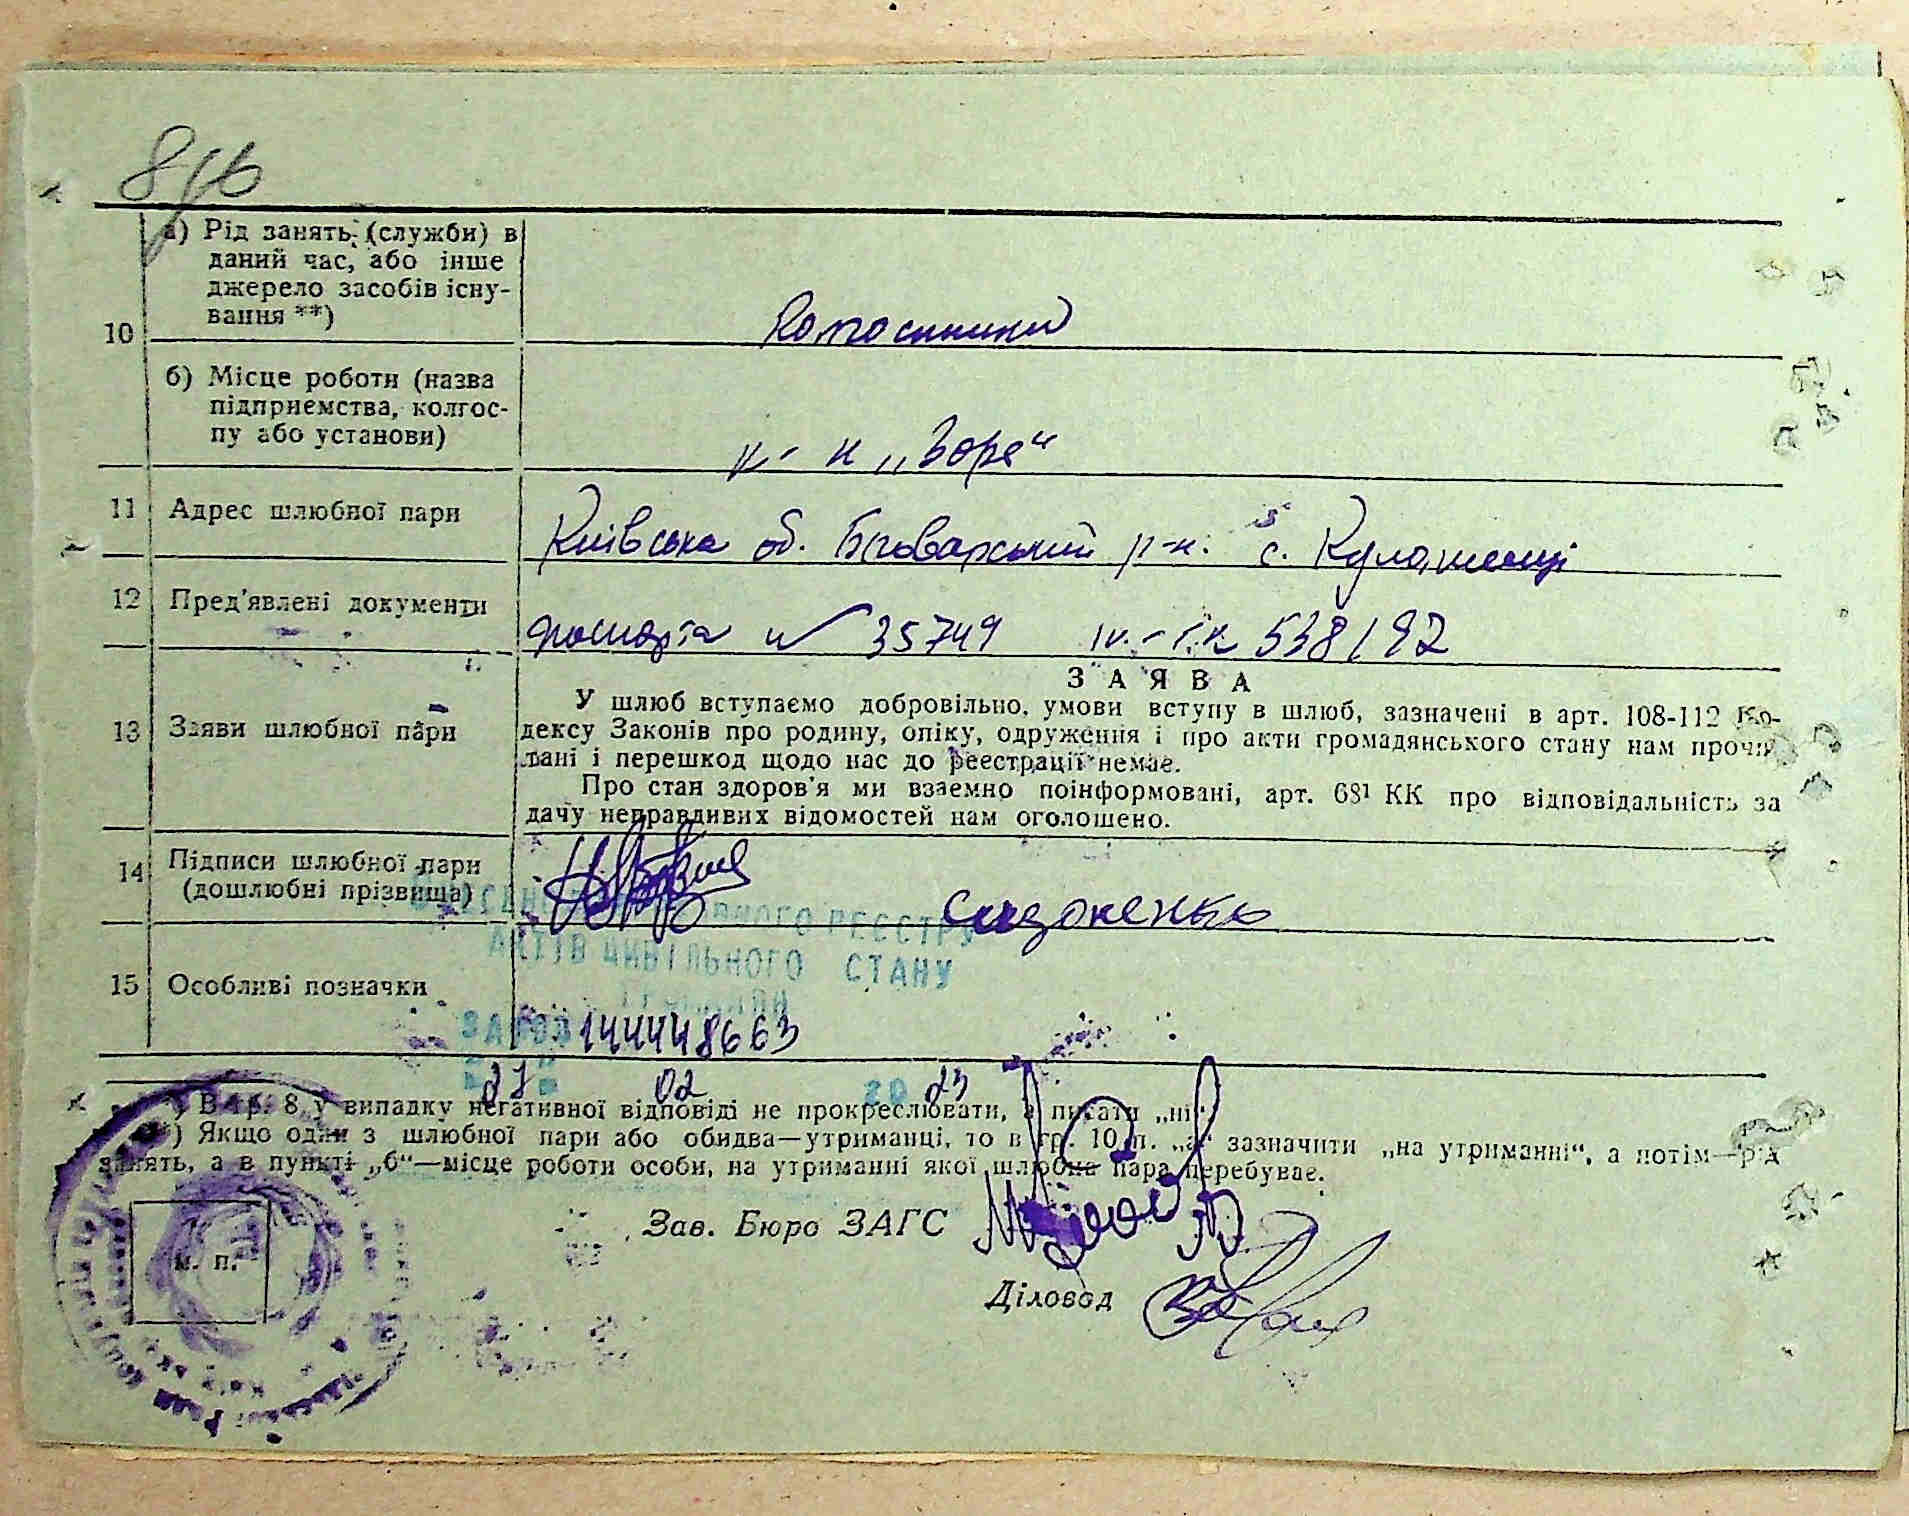 10
а) Рід занять (служби) в
даний час, або інше
джерело засобів існу-
вання **)
б) Місце роботи (назва
підприємства, колгос-
пу або установи)
к-к „Зоря“
11 Адрес шлюбної пари
Київська об. Броварський р-н. с. Кулажинці
12 Пред'явлені документи
паспорта № 35749 538192
13 Заяви шлюбної пари
ЗАЯВА
У шлюб вступаємо добровільно, умови вступу в шлюб, зазначені в арт. 108-112 Ко-
дексу Законів про родину, опіку, одруження і про акти громадянського стану нам прочи-
тані і перешкод щодо нас до реєстрації немає.
Про стан здоров'я ми взаємно поінформовані, арт. 68¹ КК про відповідальність за
дачу неправдивих відомостей нам оголошено.
14 Підписи шлюбної пари
(дошлюбні прізвища)
Сидоненко
РЕЄСТРУ
АКТІВ ЦИВІЛЬНОГО СТАНУ
ГРОМАДЯН
15 Особливі позначки
ЗА № 00144448663
27 02 2023
*) В гр. 8 у випадку негативної відповіді не прокреслювати, а писати „ні“
**) Якщо один з шлюбної пари або обидва—утриманці, то в гр. 10 п. „а“ зазначити „на утриманні“, а потім—рід
занять, а в пункті „б“—місце роботи особи, на утриманні якої шлюбна пара перебуває.
Зав. Бюро ЗАГС
м. п.
Діловод